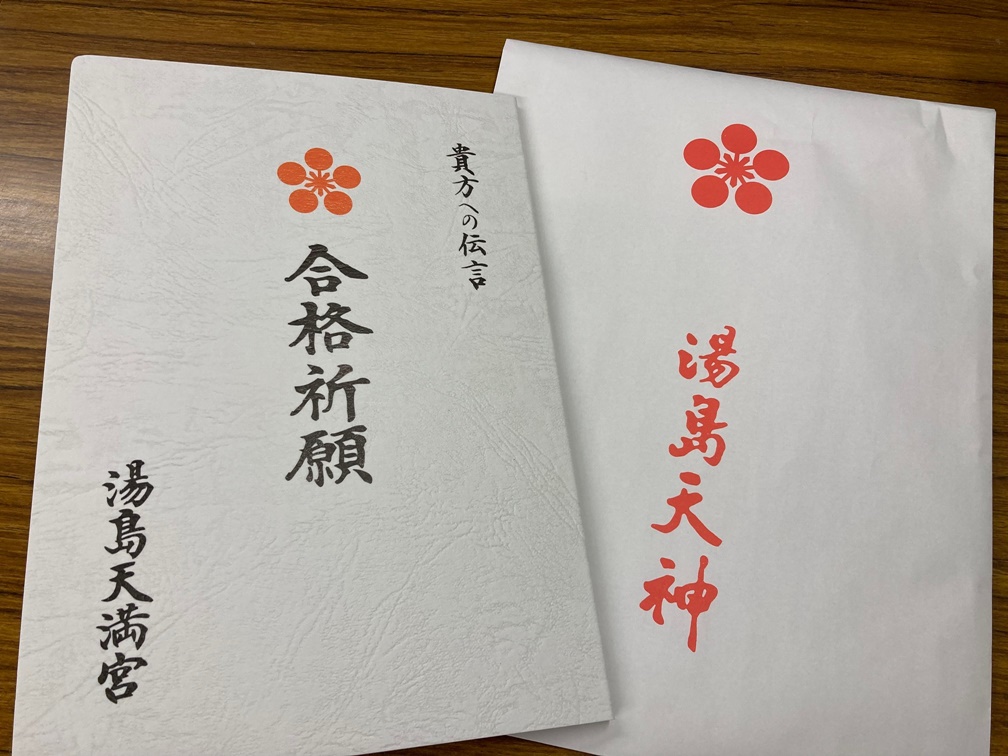 貴方への伝言
合格祈願
湯島天満宮
湯島天神